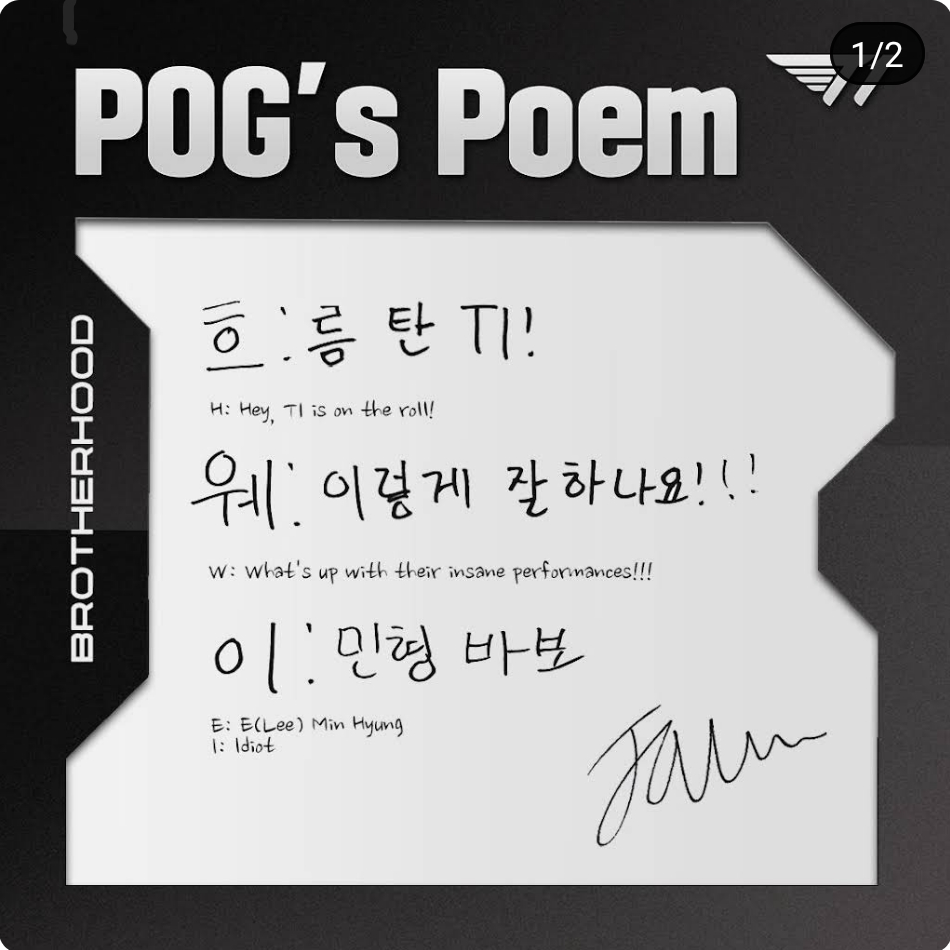 POG's Poem
1/2
BROTHERHOOD
흐:름 탄 T1!
H: Hey, T1 is on the roll!
웨: 이렇게 잘하나요!!!
W: What's up with their insane performances!!!
이: 민형 바보
E: E(Lee) Min Hyung
I: Idiot